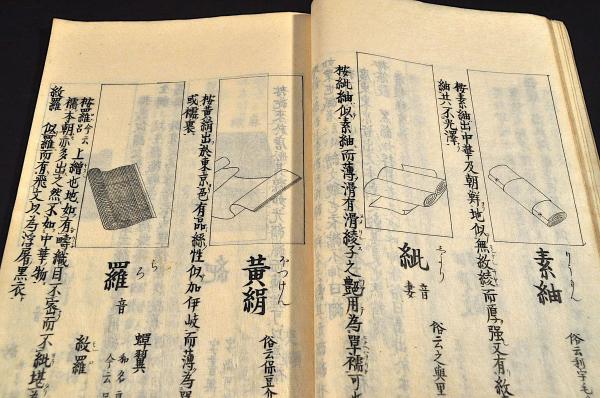 素紬
りうもん
俗云利宇毛
按素紬出中華及朝鮮地似無紋綾而厚强又有紋
紬共不光澤
紕
音
妻
しじり
俗云之與里
按紕紬似素紬而薄滑有滑綾子之艶用為單襦可也
黄絹
ほつけん
俗云保豆介
按黄絹出於東京色有品緑性似加伊岐而薄為單
或襦裏
羅
音
ろ
ちりう
蟬翼
和名
今云呂
紋羅
按羅今云呂上繒也地如有畸織目不密而不紕堪為
襦本朝亦多出之然不如中華物
紋羅似羅而有飛文以為浮屠黒衣